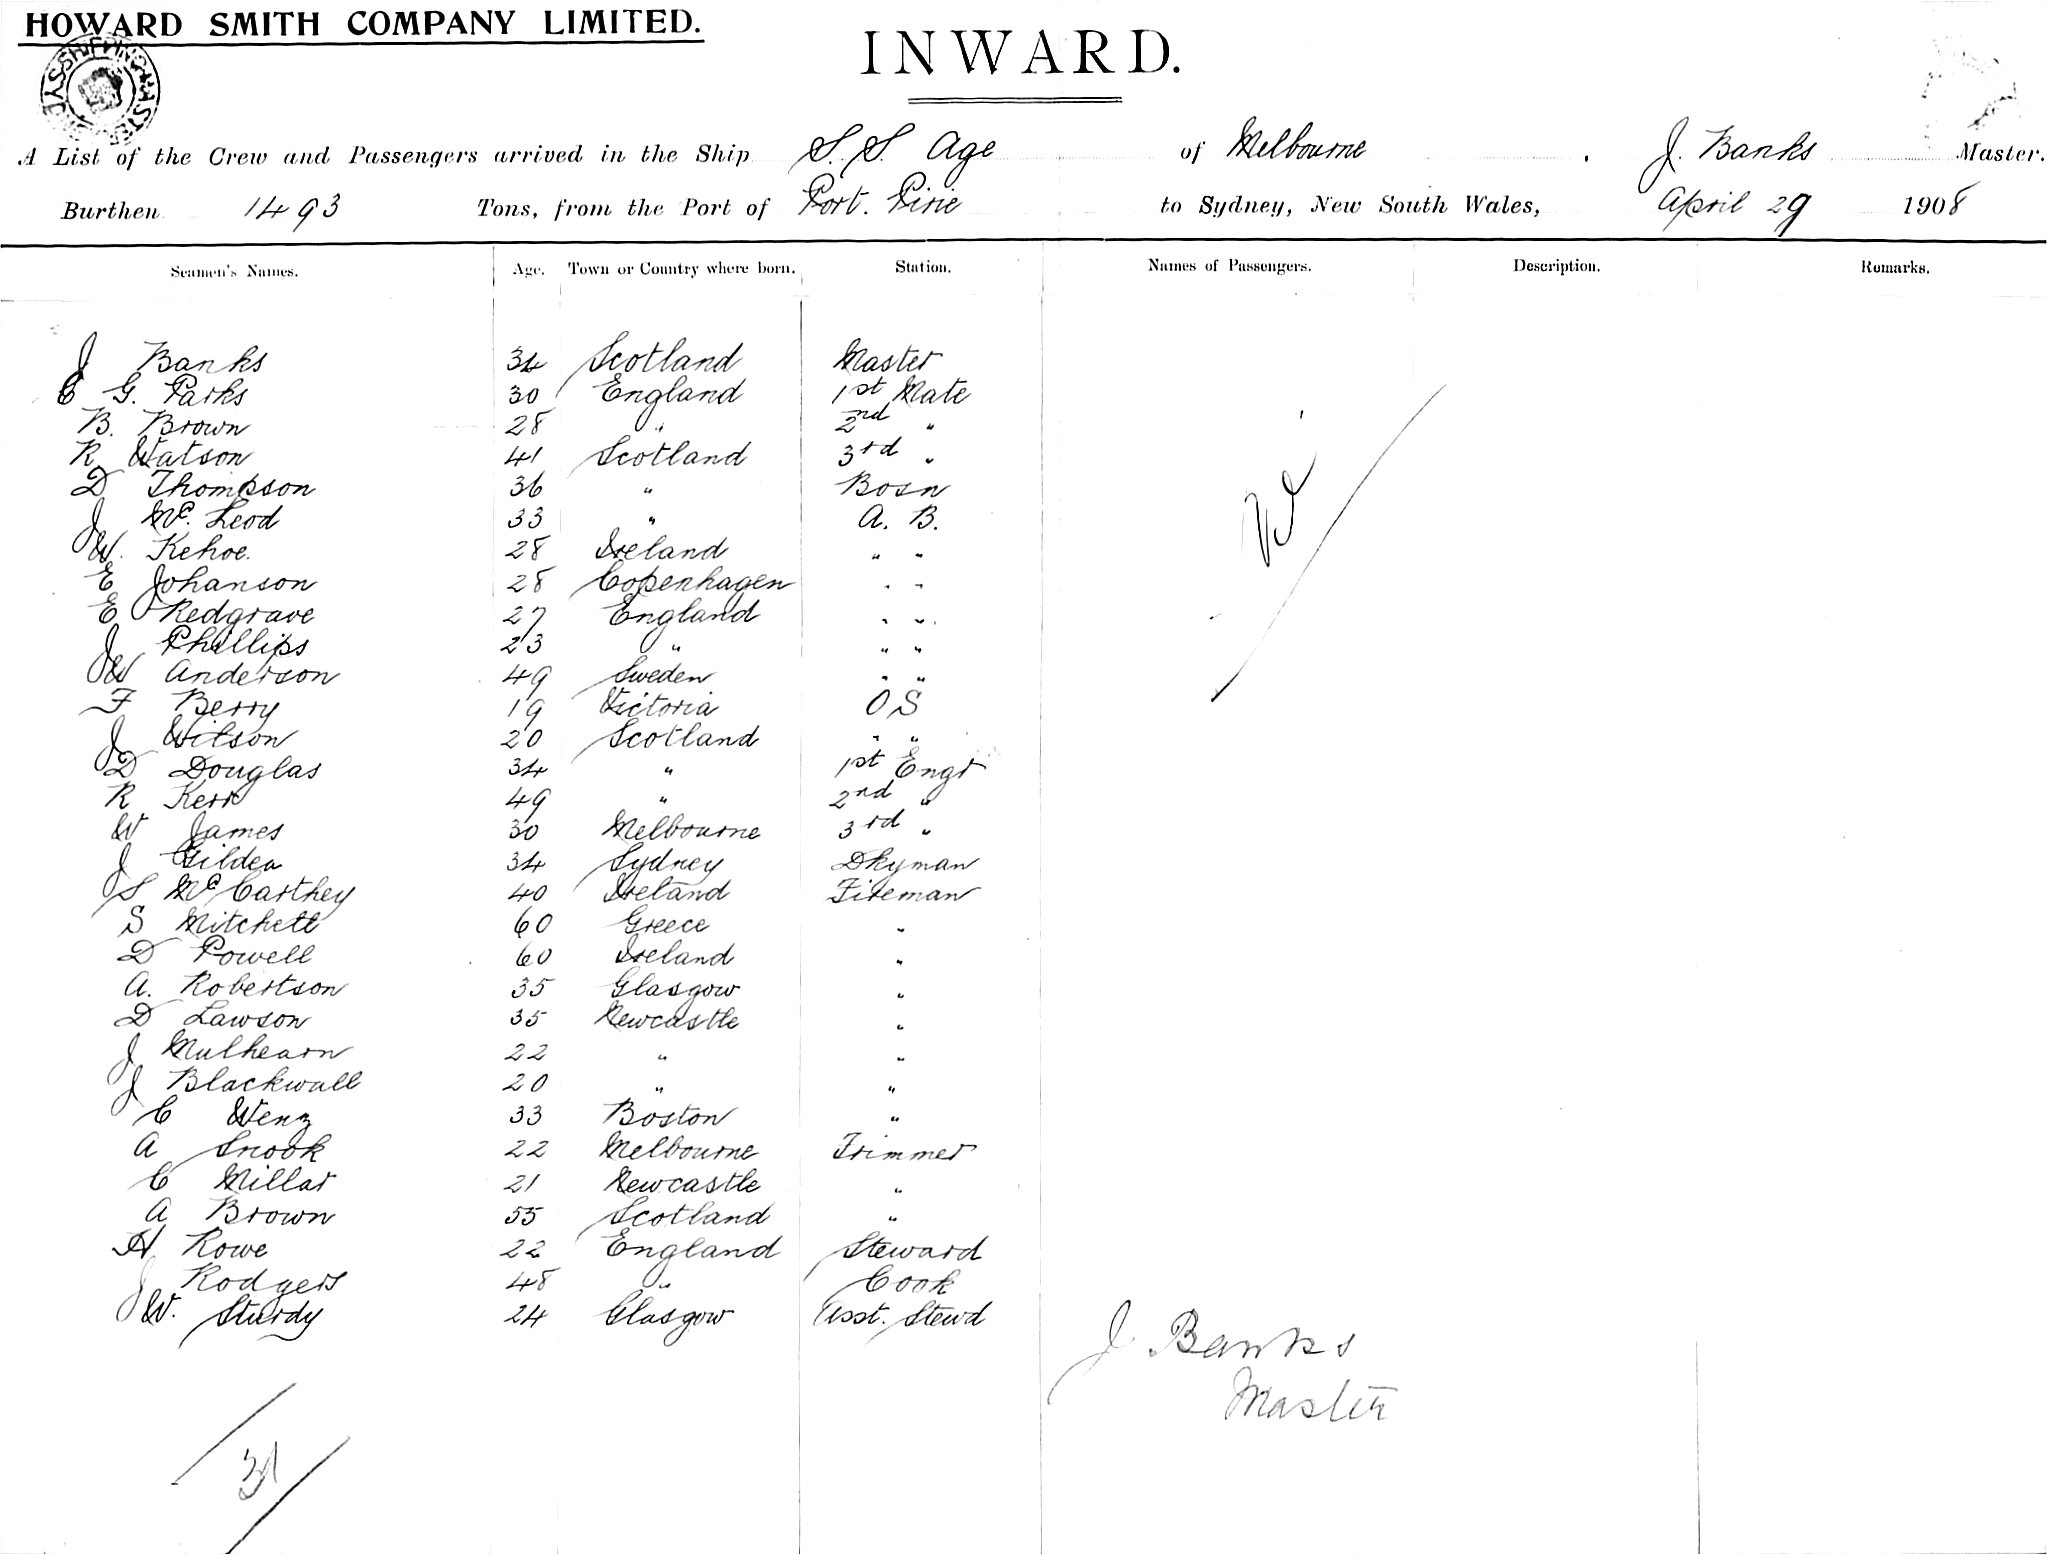 HOWARD SMITH COMPANY LIMITED.
INWARD.
A List of the Crew and Passengers arrived in the Ship S. S. Age of Melbourne, J. Banks Master.
Burthen 1493 Tons, from the Port of Port. Pirie to Sydney, New South Wales, April 29 1908
Seamen's Names. Age. Town or Country where born. Station. Names of Passengers. Description. Remarks.
J Banks 34 Scotland Master
C G. Parks 30 England 1st Mate
B. Brown 28 " 2nd "
R Watson 41 Scotland 3rd "
D Thompson 36 " Bosn
J Mc. Leod 33 " A. B.
W. Kehoe. 28 Ireland " "
E Johanson 28 Copenhagen " "
E Redgrave 27 England " "
J Phillips 23 " " "
W Anderson 49 Sweden " "
F Berry 19 Victoria O S
J Wilson 20 Scotland " "
D Douglas 34 " 1st Engr
R Kerr 49 " 2nd "
W James 30 Melbourne 3rd "
J Gildea 34 Sydney Dkyman
S McCarthey 40 Ireland Fireman
S Mitchell 60 Greece "
D Powell 60 Ireland "
A. Robertson 35 Glasgow "
D Lawson 35 Newcastle "
J Mulhearn 22 " "
J Blackwall 20 " "
C Wenz 33 Boston "
A Snook 22 Melbourne Trimmer
C Millar 21 Newcastle "
A Brown 55 Scotland "
H Rowe 22 England Steward
J Rodgers 48 " Cook
W. Sturdy 24 Glasgow Asst. Stewd
J Banks
Master
31